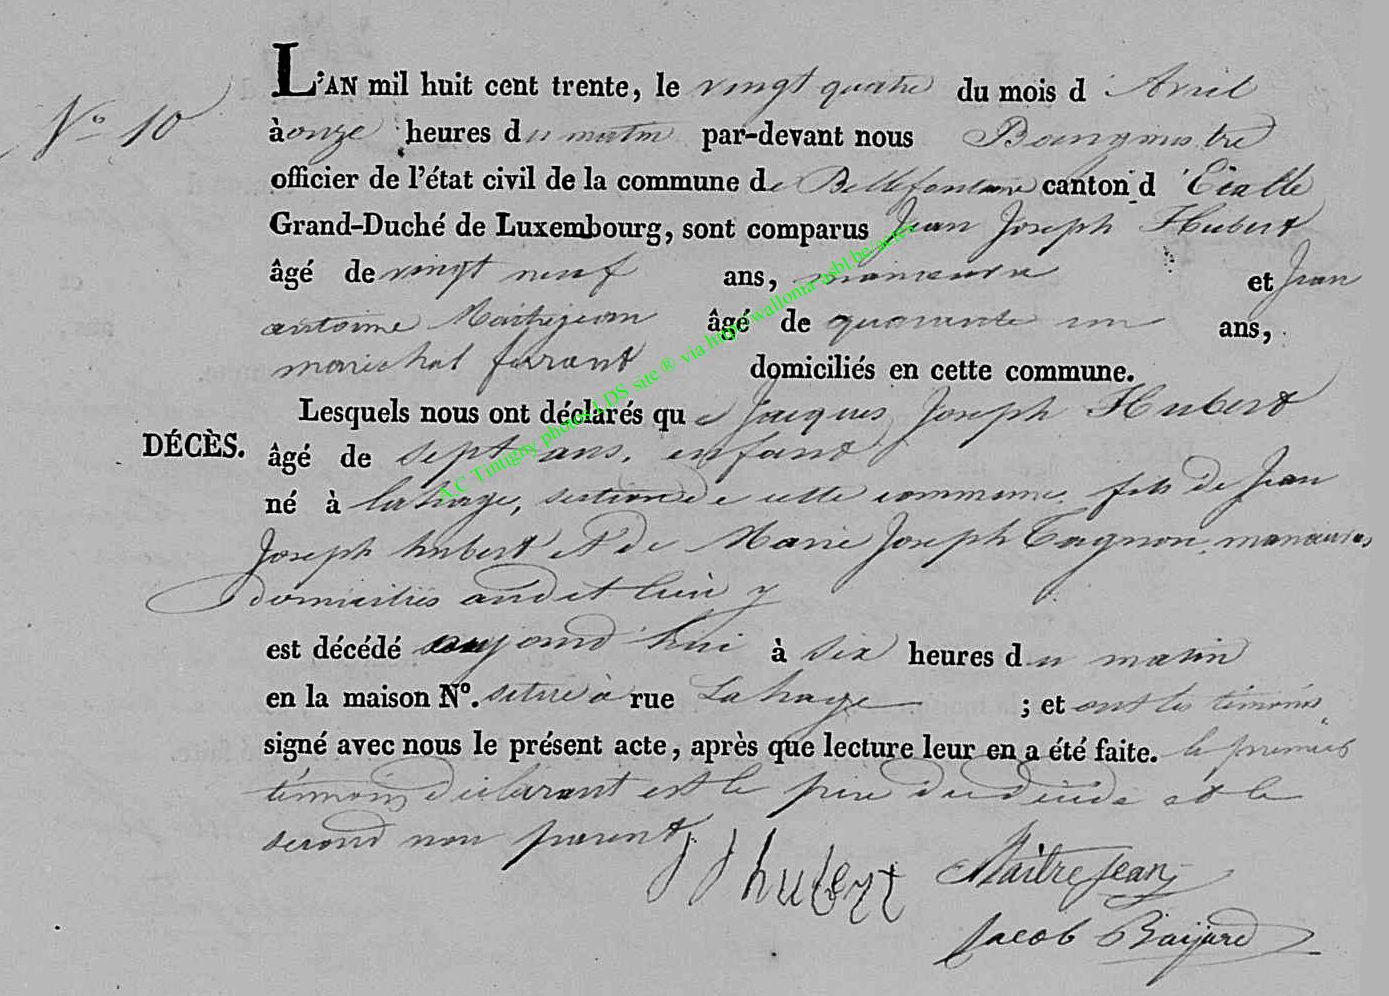 L'AN mil huit cent trente, le vingt quatre du mois d'Avril
N° 10
à onze heures du matin par-devant nous Bourgmestre
officier de l'état civil de la commune de Bellefontaine canton d'Etalle
Grand-Duché de Luxembourg, sont comparus Jean Joseph Hubert
âgé de vingt neuf ans, manoeuvre et Jean
antoine Maitrejean âgé de quarante un ans,
marichal ferrant domiciliés en cette commune.
Lesquels nous ont déclarés que Jacques Joseph Hubert
DÉCÈS. âgé de sept ans, enfant
né à lahage, section de cette commune, fils de Jean
Joseph hubert et de Marie Joseph Tagnon, manoeuvres
domiciliés audit lieu
est décédé aujourd'hui à six heures du matin
en la maison N°. située à rue Lahage ; et ont les témoins
signé avec nous le présent acte, après que lecture leur en a été faite. le premier
témoin déclarant est le père du décédé et le
second non parent
JJ hubert Maitrejean
Jacob
A.C Tintigny photos LDS site ® via http://wallonia-asbl.be/actes